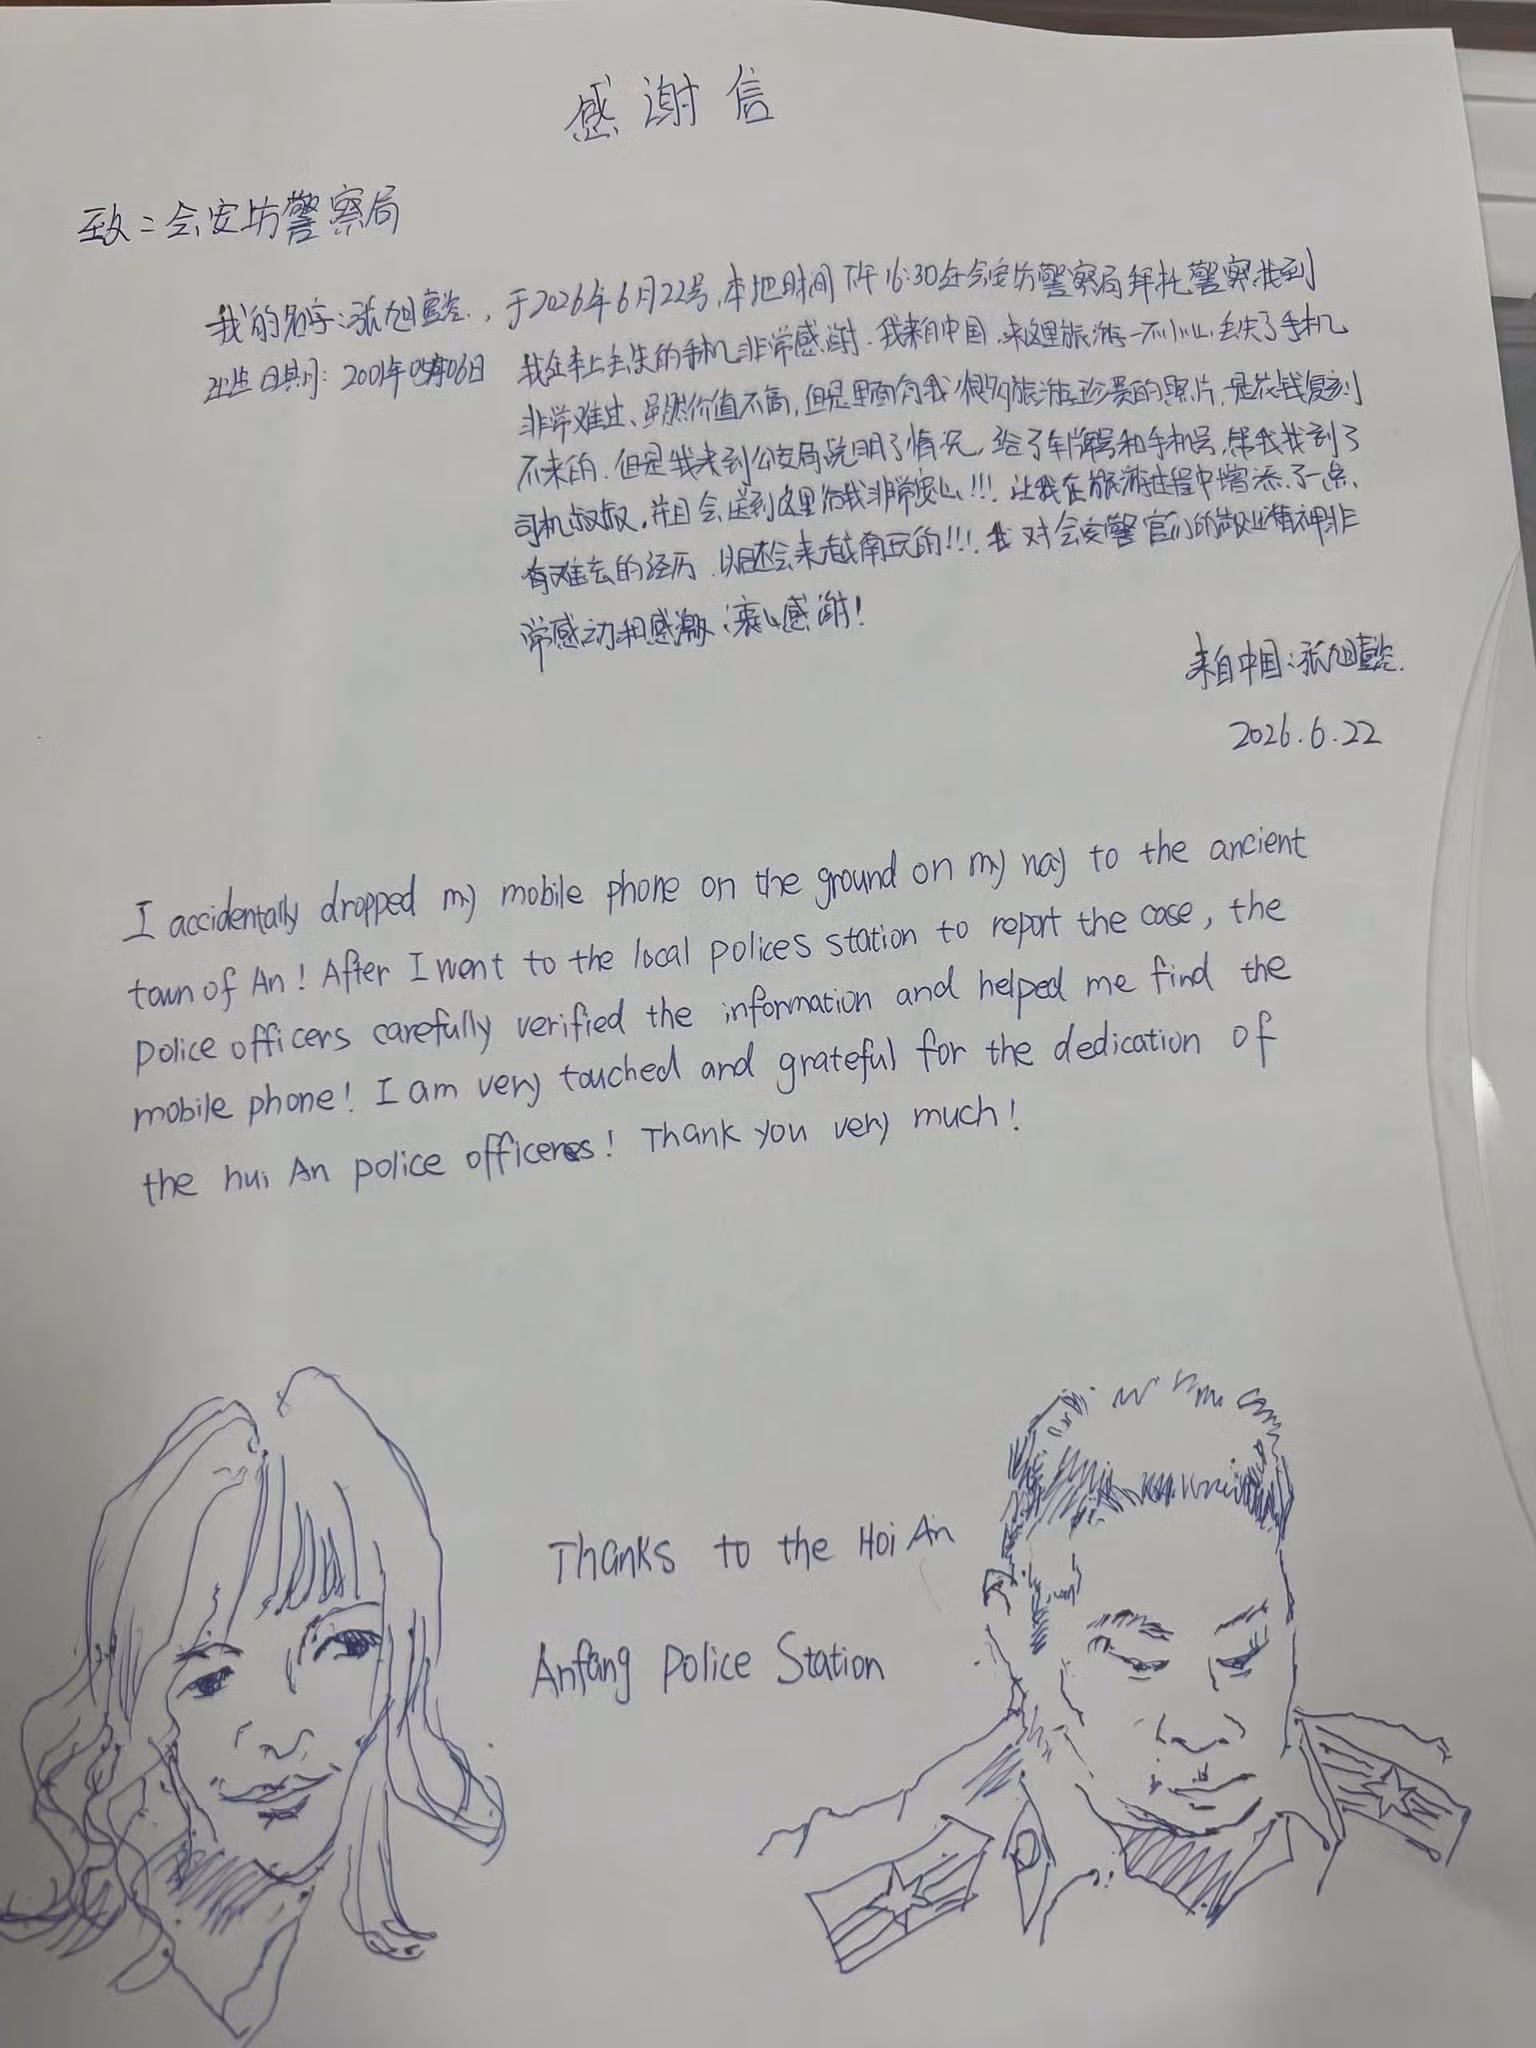 感谢信
致：会安坊警察局
我的名字：张旭懿，于2026年6月22号，本地时间下午16:30在会安坊警察局拜托警察找到
出生日期：2001年05月06日 我在车上丢失的手机非常感谢。我来自中国，来这里旅游一不小心丢失了手机
非常难过、虽然价值不高，但是里面有我很多旅游珍贵的照片，是花钱复刻
不来的，但是我来到公安局说明了情况，给了车牌号和手机号，帮我找到了
司机叔叔，并且会送到这里给我非常安心!!! 让我在旅游过程中增添了一点
有难忘的经历，以后还会来越南玩的!!! 我对会安警官们的敬业精神非
常感动和感激，衷心感谢！
来自中国：张旭懿.
2026.6.22
I accidentally dropped my mobile phone on the ground on my way to the ancient
town of An! After I went to the local polices station to report the case, the
police officers carefully verified the information and helped me find the
mobile phone! I am very touched and grateful for the dedication of
the hui An police officeres! Thank you very much!
Thanks to the Hoi An
Anfang Police Station